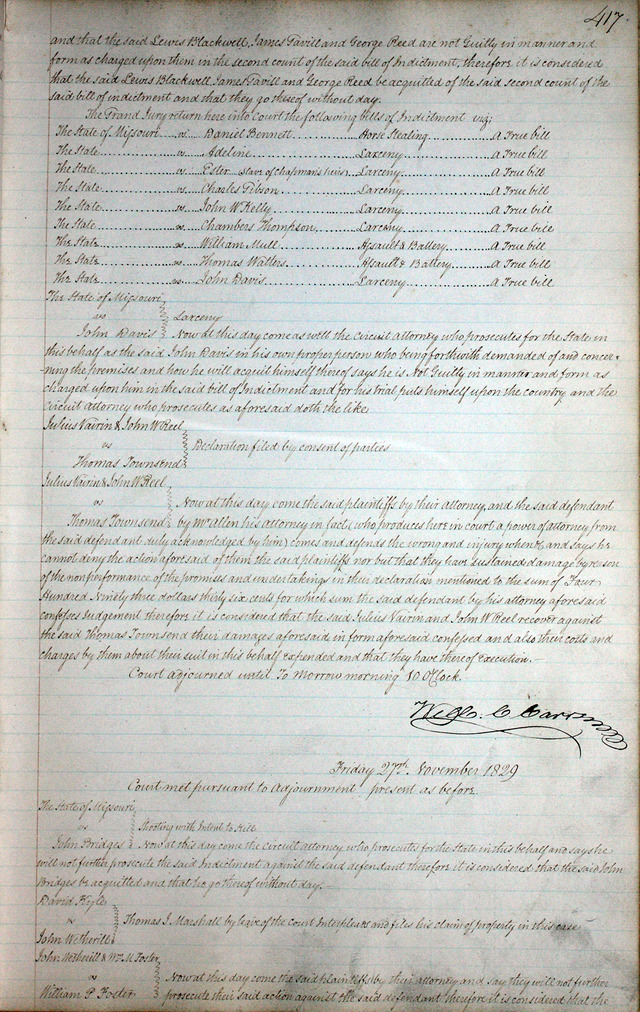 417.
and that the said Lewis Blackwell, James Savill and George Reed are not Guilty in manner and
form as charged upon them in the second count of the said bill of Indictment, therefore it is considered
that the said Lewis Blackwell James Savill and George Reed be acquitted of the said second count of the
said bill of indictment and that they go thereof without day.
The Grand Jury return here into Court the following bills of Indictment viz;
The State of Missouri vs Daniel Bennett Horse Stealing A True bill
The State vs Adeline Larceny A True bill
The State vs Ester slave of Chapmans heirs Larceny A True bill
The State vs Charles Gibson Larceny A True bill
The State vs John W Kelly Larceny A True bill
The State vs Chambers Thompson Larceny A True bill
The State vs William Mull Assault & Battery A True bill
The State vs Thomas Watters Assault & Battery A True bill
The State vs John Davis Larceny A True bill
The State of Missouri
vs Larceny
John Davis Now at this day come as well the Circuit attorney who prosecutes for the State in
this behalf as the said John Davis in his own proper person who being forthwith demanded of and concer-
ning the premises and how he will acquit himself thereof says he is Not Guilty in manner and form as
charged upon him in the said bill of Indictment and for his trial puts himself upon the country and the
Circuit attorney who prosecutes as aforesaid doth the like
Julius Vairin & John W Reel
vs Declaration filed by consent of parties
Thomas Townsend
Julius Vairin & John W Reel
vs Now at this day come the said plaintiffs by their attorney, and the said defendant
Thomas Townsend by Mr Allen his attorney in fact (who produces here in court a power of attorney from
the said defendant duly acknowledged by him) comes and defends the wrong and injury when &c and says he
cannot deny the action aforesaid of them the said plaintiffs nor but that they have sustained damage by reason
of the nonperformance of the promises and undertakings in their declaration mentioned to the sum of Four
Hundred Ninety three dollars thirty six cents for which sum the said defendant by his attorney aforesaid
confesses Judgement therefore it is considered that the said Julius Vairin and John W Reel recover against
the said Thomas Townsend their damages aforesaid in form aforesaid confessed and also their costs and
charges by them about their suit in this behalf expended and that they have thereof execution.
Court adjourned until To Morrow morning 10 OClock.
Will. C Carr
Friday 27th November 1829
Court met pursuant to Adjournment present as before.
The State of Missouri
vs Shooting with Intent to Kill
John Bridges Now at this day come the Circuit attorney who prosecutes for the State in this behalf and says he
will not further prosecute the said Indictment against the said defendant therefore it is considered that the said John
Bridges be acquitted and that he go thereof without day.
David Kyle
vs Thomas J. Marshall by leave of the court Interpleads and files his claim of property in this case
John Wetherill
John Wetherill & Wm M Foster
vs Now at this day come the said plaintiffs by their attorney and say they will not further
William P Foster prosecute their said action against the said defendant therefore it is considered that the